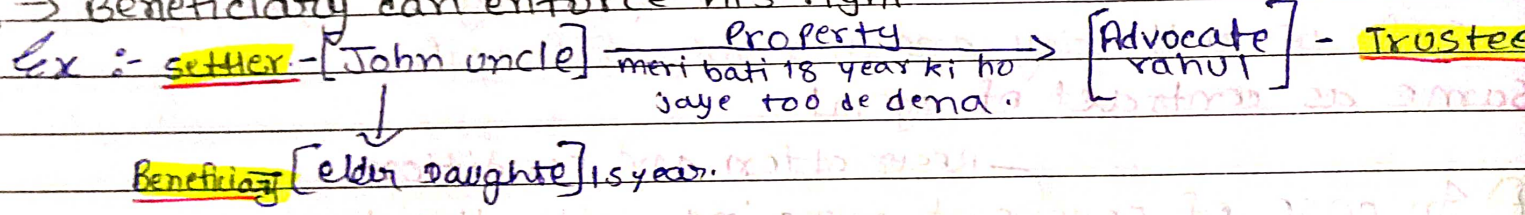 → Beneficiary can enforce his right
Ex :- settler - [John uncle] Property → [Advocate rahul] - Trustee
meri bati 18 year ki ho
jaye too de dena.
↓
Beneficiary [elder Daughte] 15 year.